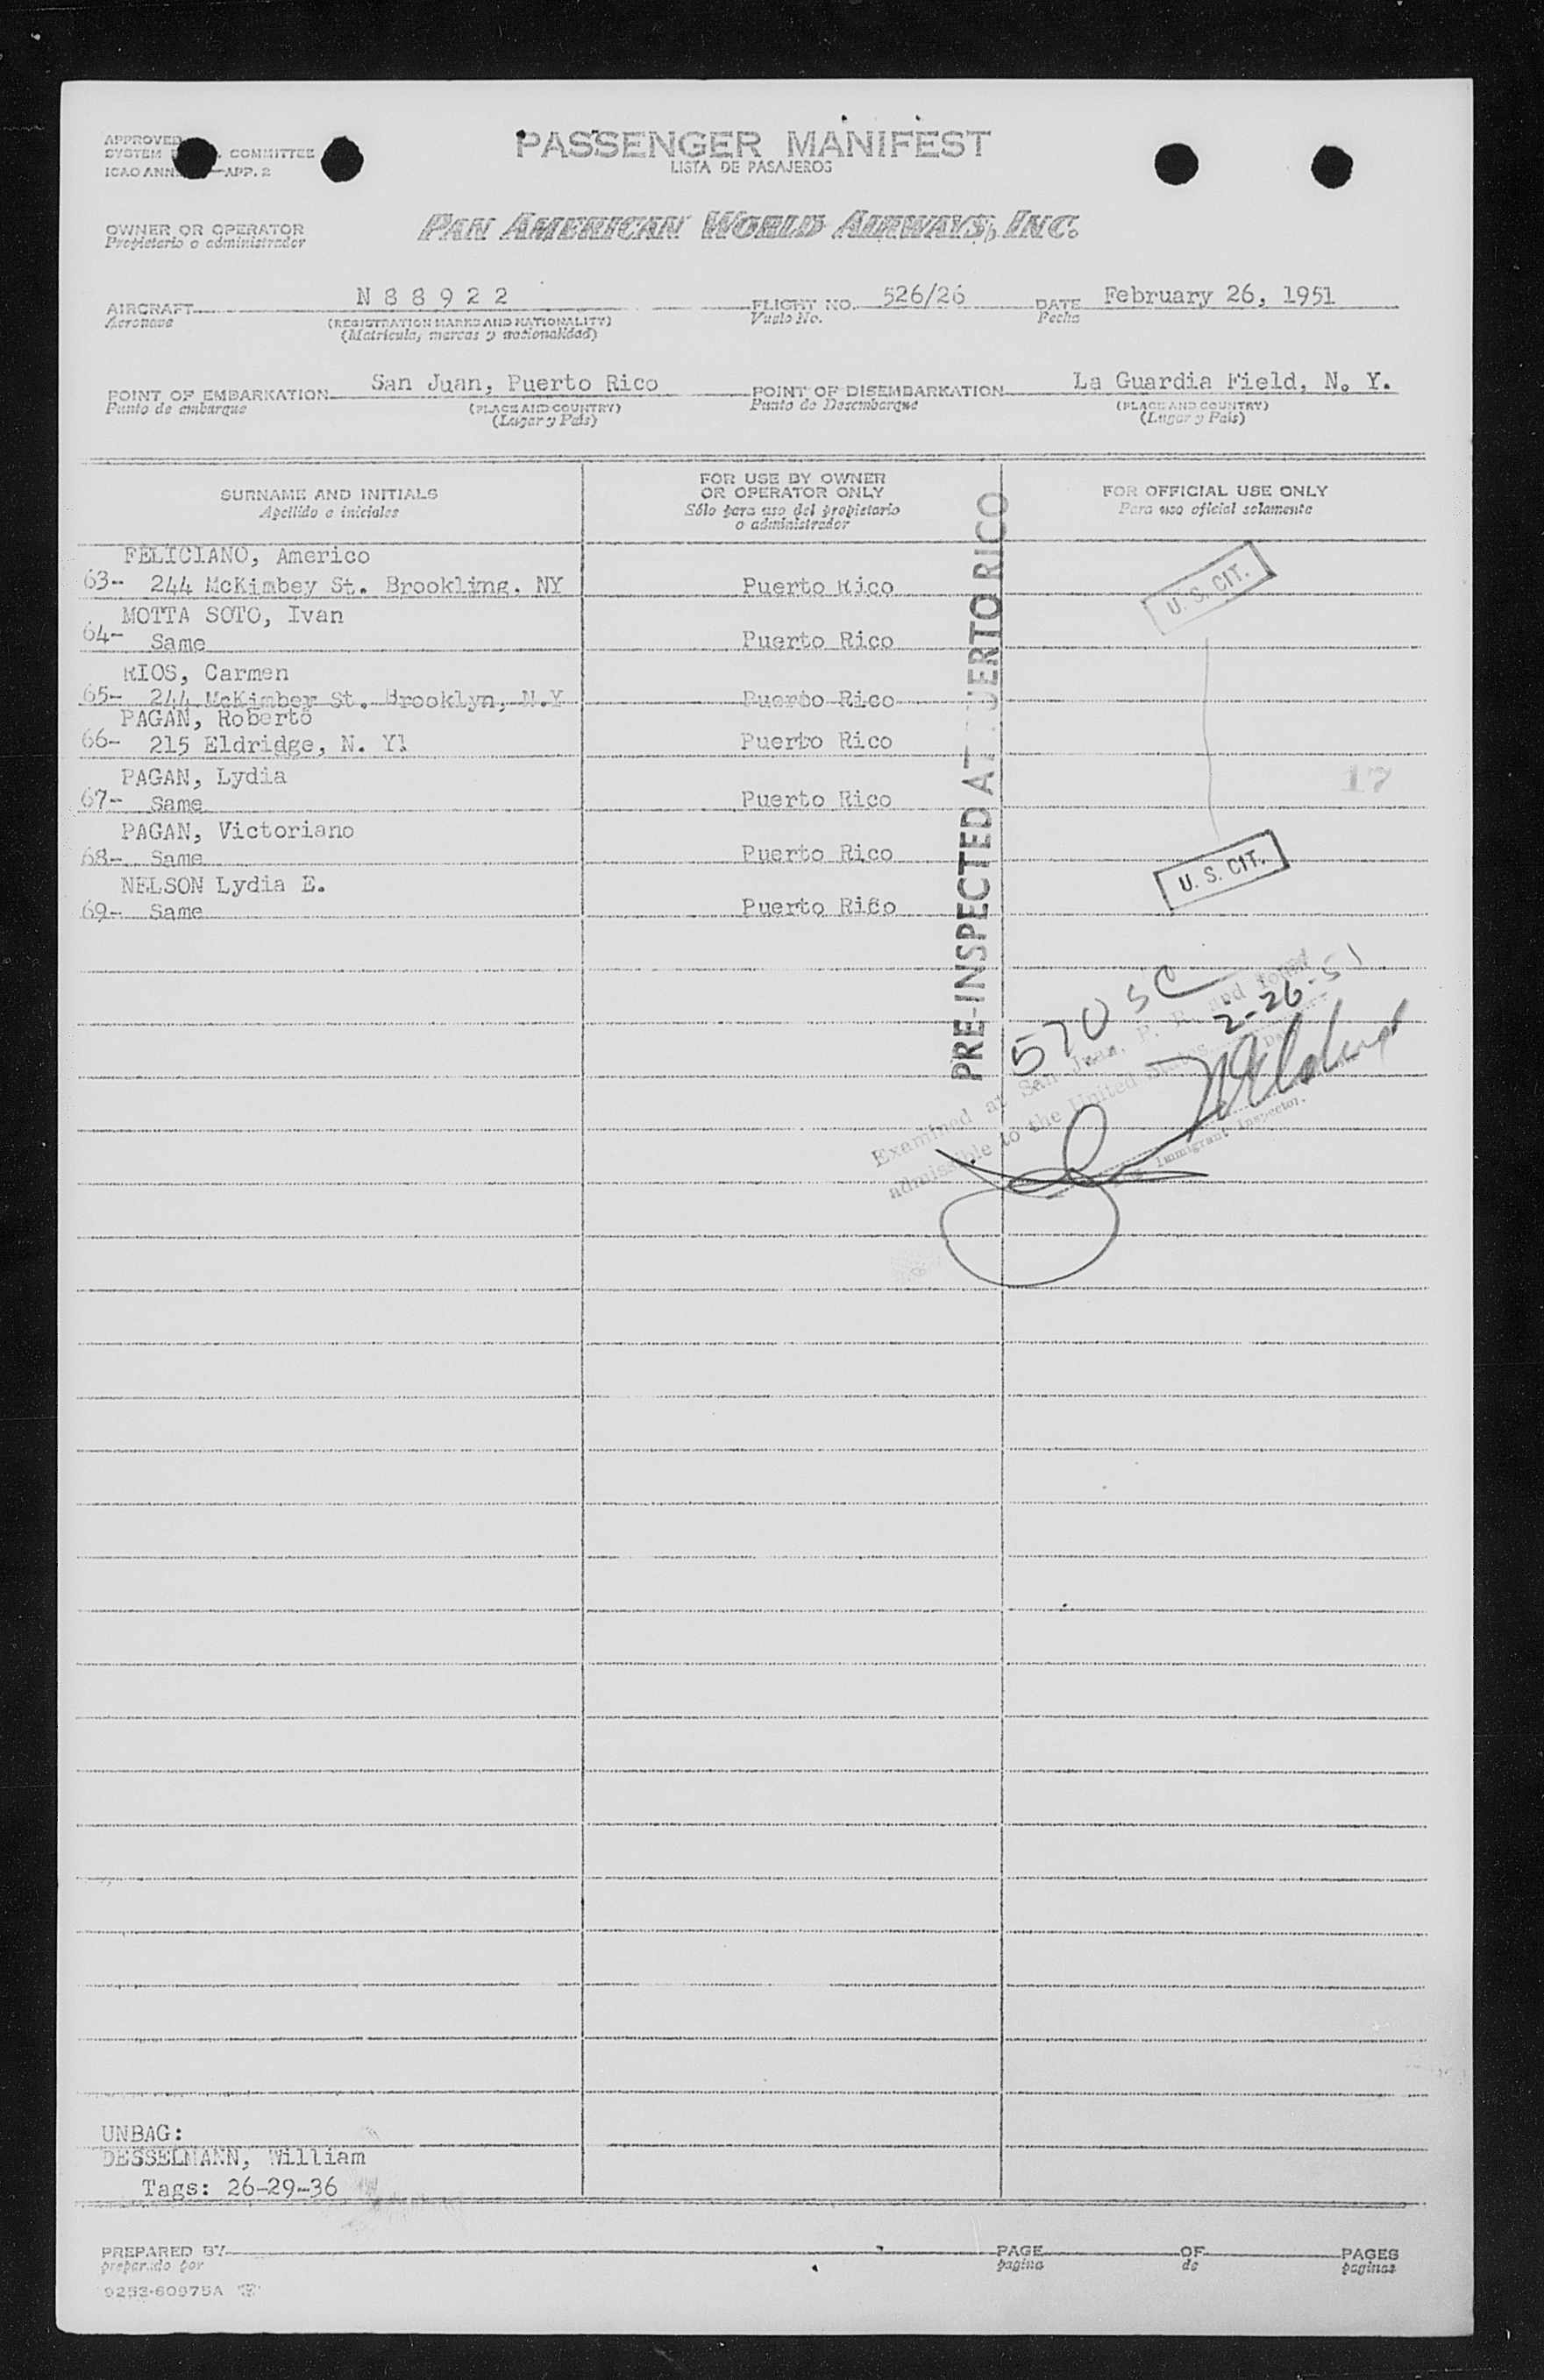 APPROVED
SYSTEM COMMITTEE
ICAO ANN. APP. 2
PASSENGER MANIFEST
LISTA DE PASAJEROS
OWNER OR OPERATOR
Propietario o administrador
PAN AMERICAN WORLD AIRWAYS, INC.
AIRCRAFT N 8 8 9 2 2 FLIGHT NO. 526/26 DATE February 26, 1951
Aeronave (REGISTRATION MARKS AND NATIONALITY) Vuelo No. Fecha
(Matricula, marcas y nacionalidad)
POINT OF EMBARKATION San Juan, Puerto Rico POINT OF DISEMBARKATION La Guardia Field, N. Y.
Punto de embarque (PLACE AND COUNTRY) Punto de Desembarque (PLACE AND COUNTRY)
(Lugar y Pais) (Lugar y Pais)
SURNAME AND INITIALS
Apellido e iniciales
FOR USE BY OWNER
OR OPERATOR ONLY
Sólo para uso del propietario
o administrador
FOR OFFICIAL USE ONLY
Para uso oficial solamente
FELICIANO, Americo
63- 244 McKimbey St. Brookling. NY Puerto Rico
U. S. CIT.
MOTTA SOTO, Ivan
64- Same Puerto Rico
RIOS, Carmen
65- 244 McKimber St. Brooklyn, N.Y Puerto Rico
PAGAN, Roberto
66- 215 Eldridge, N. Yl Puerto Rico
PAGAN, Lydia
67- Same Puerto Rico
17
PAGAN, Victoriano
68- Same Puerto Rico
U. S. CIT.
NELSON Lydia E.
69- Same Puerto Rico
PRE-INSPECTED AT PUERTO RICO
570 SC
2-26-51
Examined at San Juan, P. R. and found
admissible to the United States.
Immigrant Inspector.
UNBAG:
DESSELMANN, William
Tags: 26-29-36
PREPARED BY PAGE OF PAGES
preparado por pagina de paginas
9253-60975A